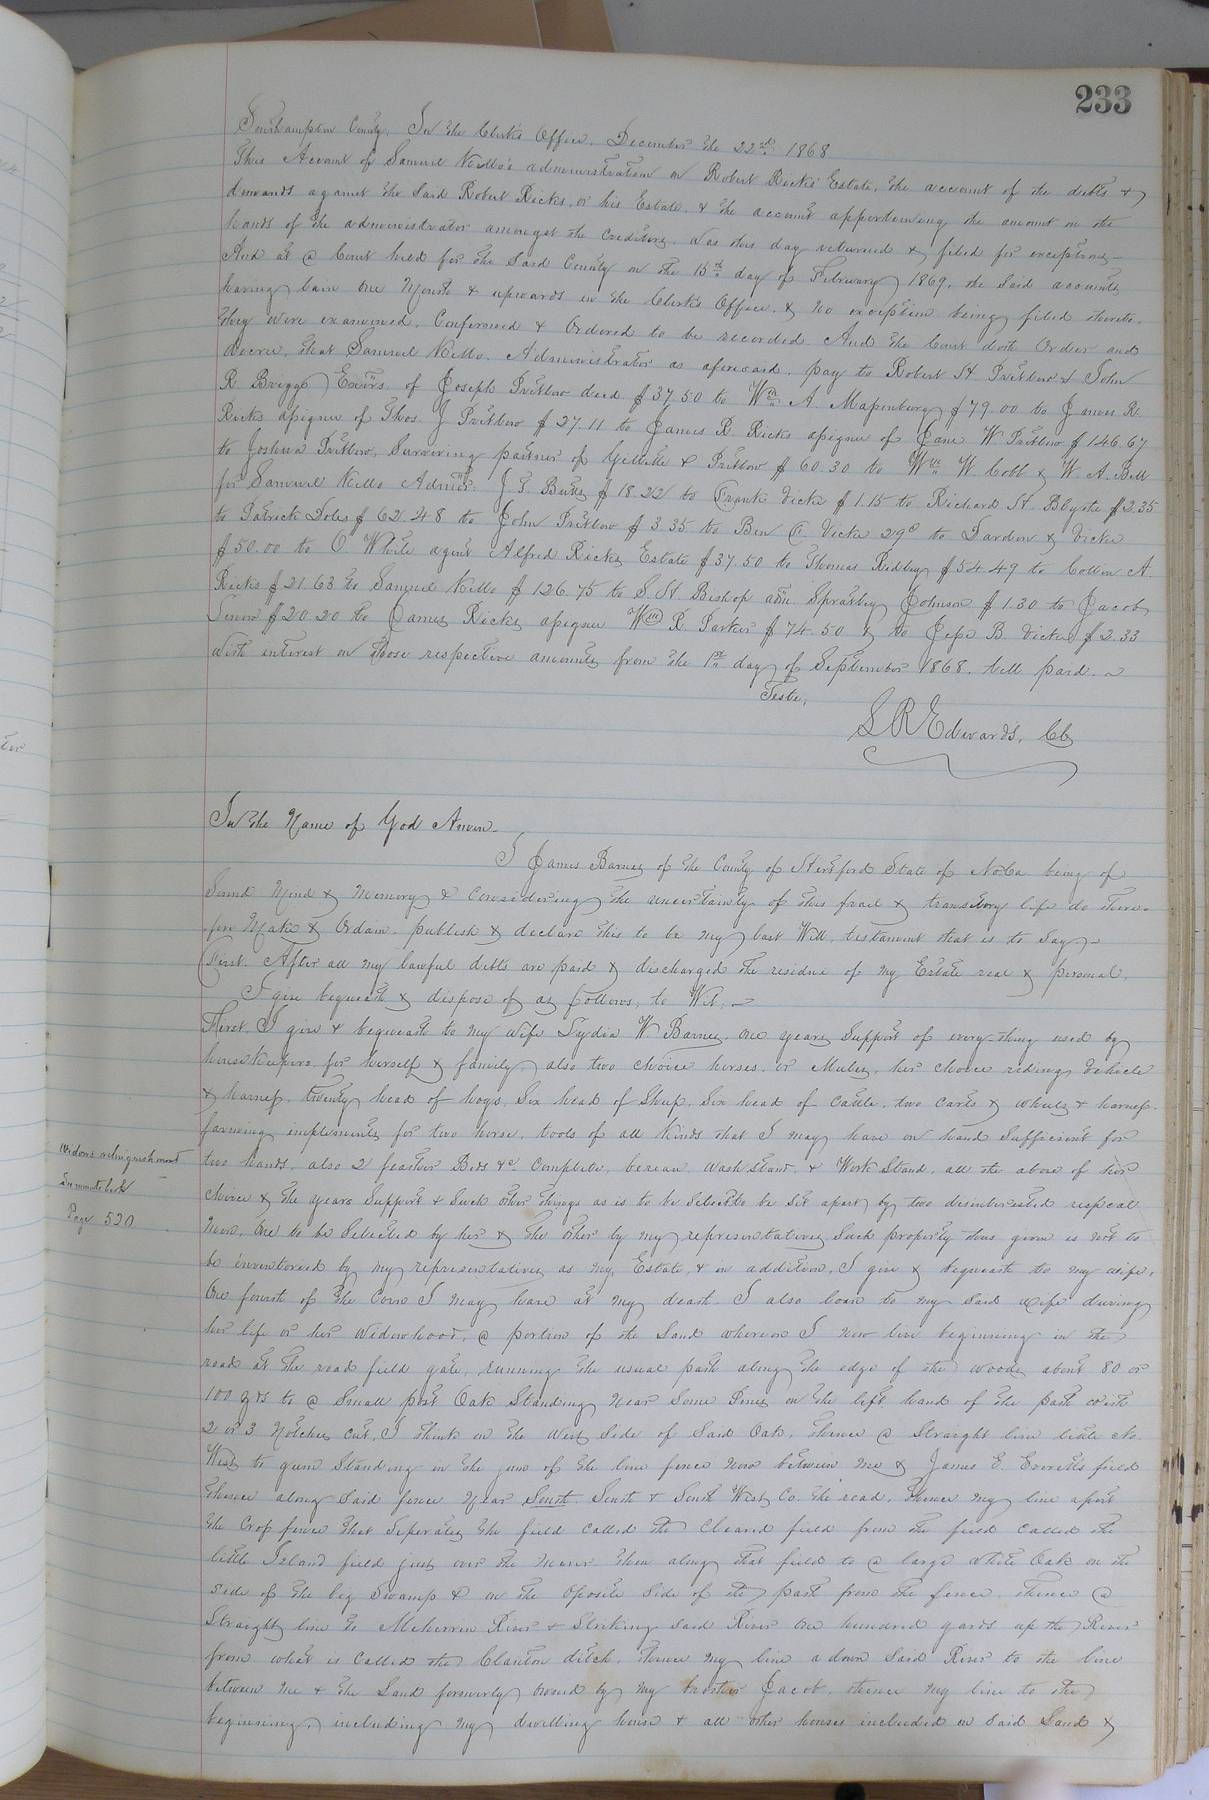 233
Southampton County, In the Clerk's Office, December the 22nd 1868
This Account of Samuel Kello's administration on Robert Ricks' Estate, the account of the debts &
demands against the Said Robert Ricks, or his Estate, & the account apportioning the amount in the
hands of the administrator amongst the Creditors, was this day returned & filed for exceptions—
And at a Court held for the Said County on the 15th day of February 1869, the Said accounts
having been One Month & upwards in the Clerk's Office, & no exception being filed thereto,
they were examined, Confirmed & Ordered to be recorded. And the Court doth Order and
decree, that Samuel Kello, Administrator as aforesaid, pay to Robert H Pretlow & John
R Briggs Exors. of Joseph Pretlow decd $37.50 to Wm A. Mapenburg $79.00 to James R.
Ricks assignee of Thos. J Pretlow $27.11 to James R. Ricks assignee of Jane W Pretlow $146.67
to Joshua Pretlow, Surviving partner of & Pretlow $60.30 to Wm W Cobb & W. A. Bell
for Samuel Kello Admor. J. T. $18.22 to Frank Vick $1.15 to Richard H. $2.35
to Patrick Doles $62.48 to John Pretlow $3.35 to Ben C. Vick 29c to Darden & Vick
$50.00 to O. White agent Alfred Ricks Estate $37.50 to Thomas Ridley $54.49 to A.
Ricks $21.63 to Samuel Kello $126.75 to S. H Bishop adm. Spratley Johnson $1.30 to Jacob
$20.20 to James Ricks assignee Wm R. Parker $74.50 & to Jesse B. Vick $2.33
with interest on those respective amounts from the 1st day of September 1868, till paid.
Teste,
L R Edwards, CC
In the Name of God Amen—
I James Barnes of the County of Hertford State of No Ca being of
Sound Mind & Memory & Considering the uncertainty of this frail & transitory life do there-
fore Make & Ordain, publish & declare this to be my last Will, testament that is to Say—
First. After all my lawful debts are paid & discharged the residue of my Estate real & personal
I give bequeath & dispose of as follows, to Wit, —
First, I give & bequeath to my wife Lydia W. Barnes, one years Support of every-thing used by
houseKeepers for herself & family, also two choice horses, or Mules, her choice riding Vehicle
& harness, twenty head of hogs, Six head of Sheep, Six head of Cattle, two carts & wheels & harness,
farming implements for two horse, tools of all Kinds that I may have on hand Sufficient for
two hands, also 2 feather Beds &c. Complete, bureau, Wash Stand, & Work Stand, all the above of her
choice & the years Support & Such other things as is to be Selected to be Set apart by two disinterested
men, One to be Selected by her & the other by my representatives, Such property thus given is not to
be inventoried by my representatives as my Estate, & in addition, I give & bequeath to my wife,
One fourth of the Corn I may have at my death. I also loan to my Said wife during
her life or her Widowhood, a portion of the Land whereon I now live beginning in the
road at the road field gate, running the usual path along the edge of the woods about 80 or
100 yds to a Small post Oak Standing near Some Pines on the left hand of the path with
2 or 3 Notches cut, I think on the West Side of Said Oak, thence a Straight line little No
West to gum Standing in the jam of the line fence now between me & James E. Everetts field
thence along Said fence near South, South & South West Co. the road, thence my line
the Crop fence that Seperates the field called the Cleared field from the field called the
little Island field just over the then along that field to a large White Oak on the
Side of the big Swamp & on the Oposite Side of the path from the fence, thence a
Straight line to Meherrin River & Striking Said River One hundred yards up the River
from what is Called the Clanton ditch, thence my line a down Said River to the line
between me & the Land formerly Owned by my brother Jacob, thence my line to the
beginning, including my dwelling house & all other houses included on Said Land &
Widows relinquishment
In minute book
Page 520